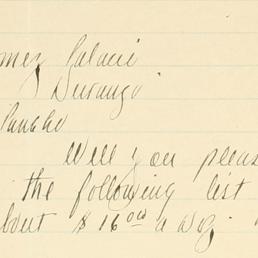 mez Palacio
Durango
Pancho
Will you pleas
the following list
bout $16 00 a doz.